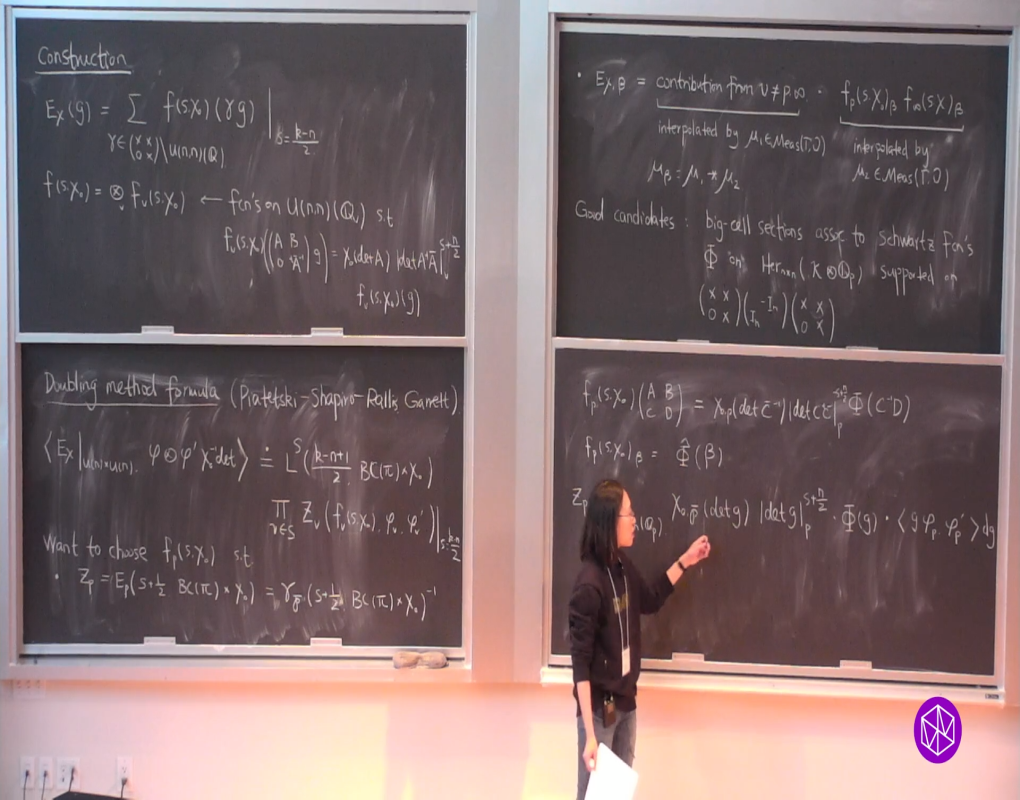 Construction
E_χ(g) = Σ f(s.χ₀)(γg) |
γ∈(× × / 0 ×)\U(n,n)(Q) s=k-n/2.
f(s.χ₀) = ⊗_v f_v(s.χ₀) ← fcn's on U(n,n)(Q_v) s.t
f_v(s.χ₀)((A B / 0 ᵗĀ⁻¹) g) = χ₀(det A) |det AᵗĀ|_v^{s+n/2}
f_v(s.χ₀)(g)
Doubling method formula (Piatetski-Shapiro-Rallis, Garrett)
⟨E_χ|_{U(n)×U(n)}, φ⊗φ'χ⁻¹det⟩ ≐ L^S(k-n+1/2. BC(π)×χ₀)
∏_{v∈S} Z_v(f_v(s.χ₀). φ_v. φ_v')|_{s=k-n/2}
Want to choose f_p(s.χ₀) s.t
• Z_p = E_p(s+1/2 BC(π)×χ₀) = γ_𝔭(s+1/2. BC(π)×χ₀)⁻¹
• E_{χ,β} = contribution from v≠p∞ · f_p(s.χ₀)_β f_∞(s.χ)_β
interpolated by μ₁∈Meas(Γ.O) interpolated by
μ_β = μ₁ * μ₂ μ₂∈Meas(Γ.O)
Good candidates : big-cell sections assoc to Schwartz fcn's
Φ "on" Her_{n×n}(K⊗Q_p) supported on
(× × / 0 ×)(-I_n / I_n)(× × / 0 ×)
f_p(s.χ₀)(A B / C D) = χ₀.p(det C̄⁻¹) |det CC̄|_p^{s+n/2} Φ(C⁻¹D)
f_p(s.χ₀)_β = Φ̂(β)
Z_p (Q_p). χ₀.𝔭(det g) |det g|_p^{s+n/2} · Φ(g) · ⟨gφ_p. φ_p'⟩dg